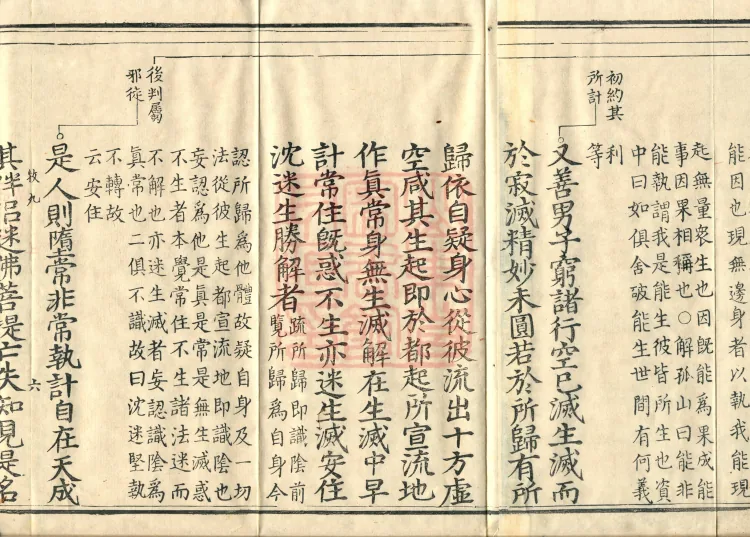 能因也現無邊身者以執我能現
起無量衆生也因旣能爲果成能
事因果相稱也○解孤山曰能非
能執謂我是能生彼皆所生也資
中曰如俱舍破能生世間有何義
利
等
初約其
所計
又善男子窮諸行空已滅生滅而
於寂滅精妙未圓若於所歸有所
歸依自疑身心從彼流出十方虛
空咸其生起即於都起所宣流地
作眞常身無生滅解在生滅中早
計常住旣惑不生亦迷生滅安住
沈迷生勝解者
疏所歸即識陰前
覽所歸爲自身今
認所歸爲他體故疑自身及一切
法從彼生起都宣流地即識陰也
妄認爲他是眞是常是無生滅惑
不生者本覺常住不生諸法迷而
不解也亦迷生滅者妄認識陰爲
眞常也二俱不識故曰沈迷堅執
不轉故
云安住
後判屬
邪徒
是人則墮常非常執計自在天成
牧九
六
其伴侶迷佛菩提亡失知見是名